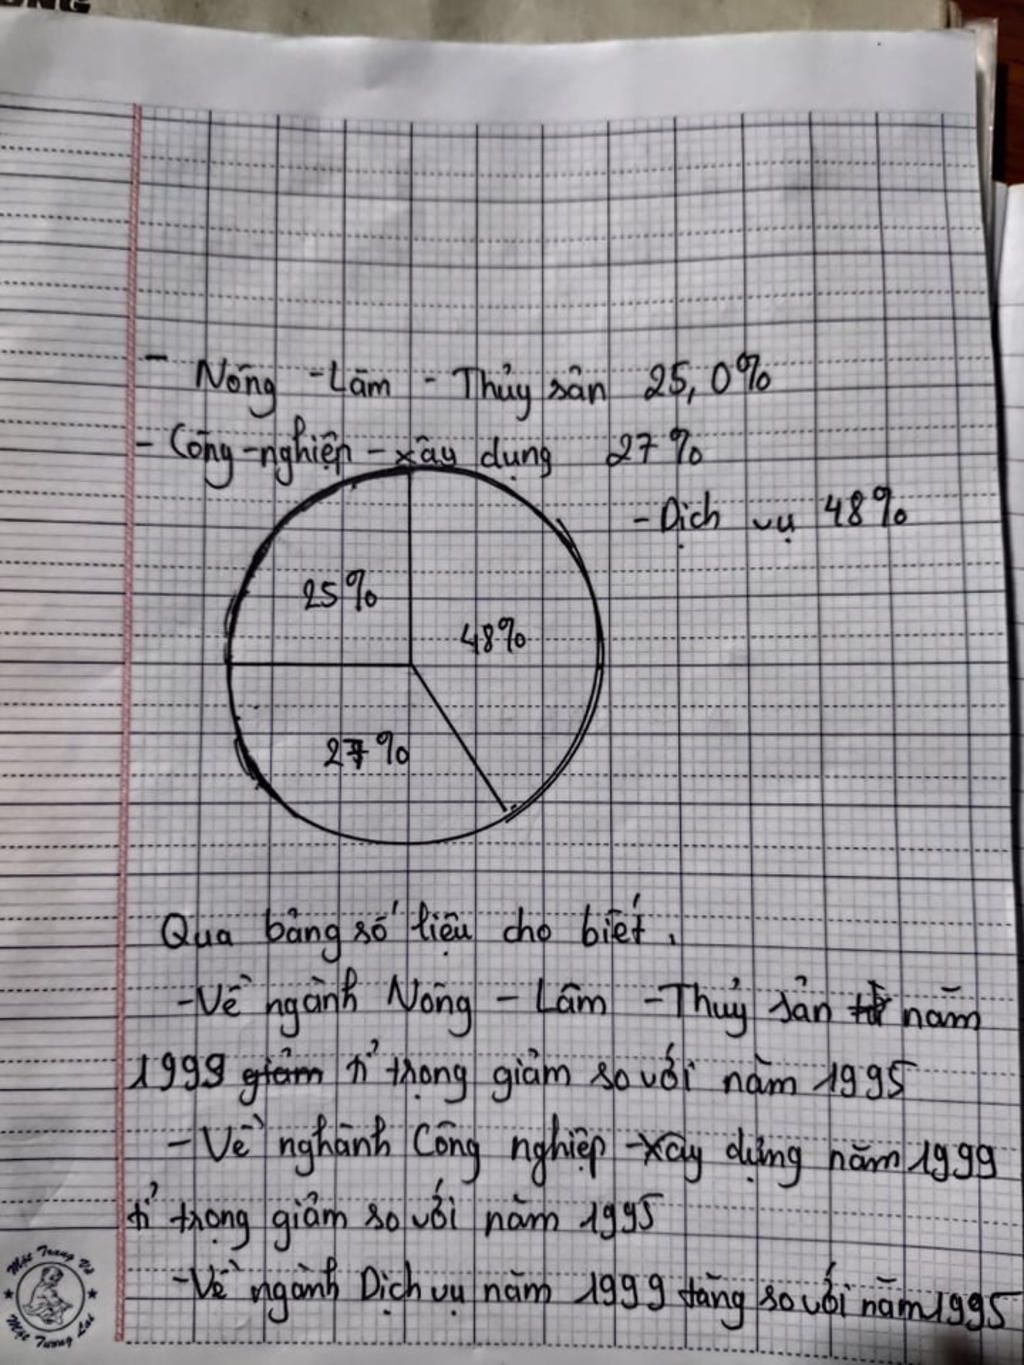 - Nông - Lâm - Thủy sản 25,0%
- Công-nghiệp - xây dụng 27%
- Dịch vụ 48%
25%
48%
27%
Qua bảng số liệu cho biết,
- Về ngành Nông - Lâm - Thuỷ sản năm
1999 giảm tỉ trọng giảm so với năm 1995
- Về nghành Công nghiệp - xây dựng năm 1999
tỉ trọng giảm so với năm 1995
- Về ngành Dịch vụ năm 1999 tăng so với năm 1995
Một Trang Vở
Một Tương Lai